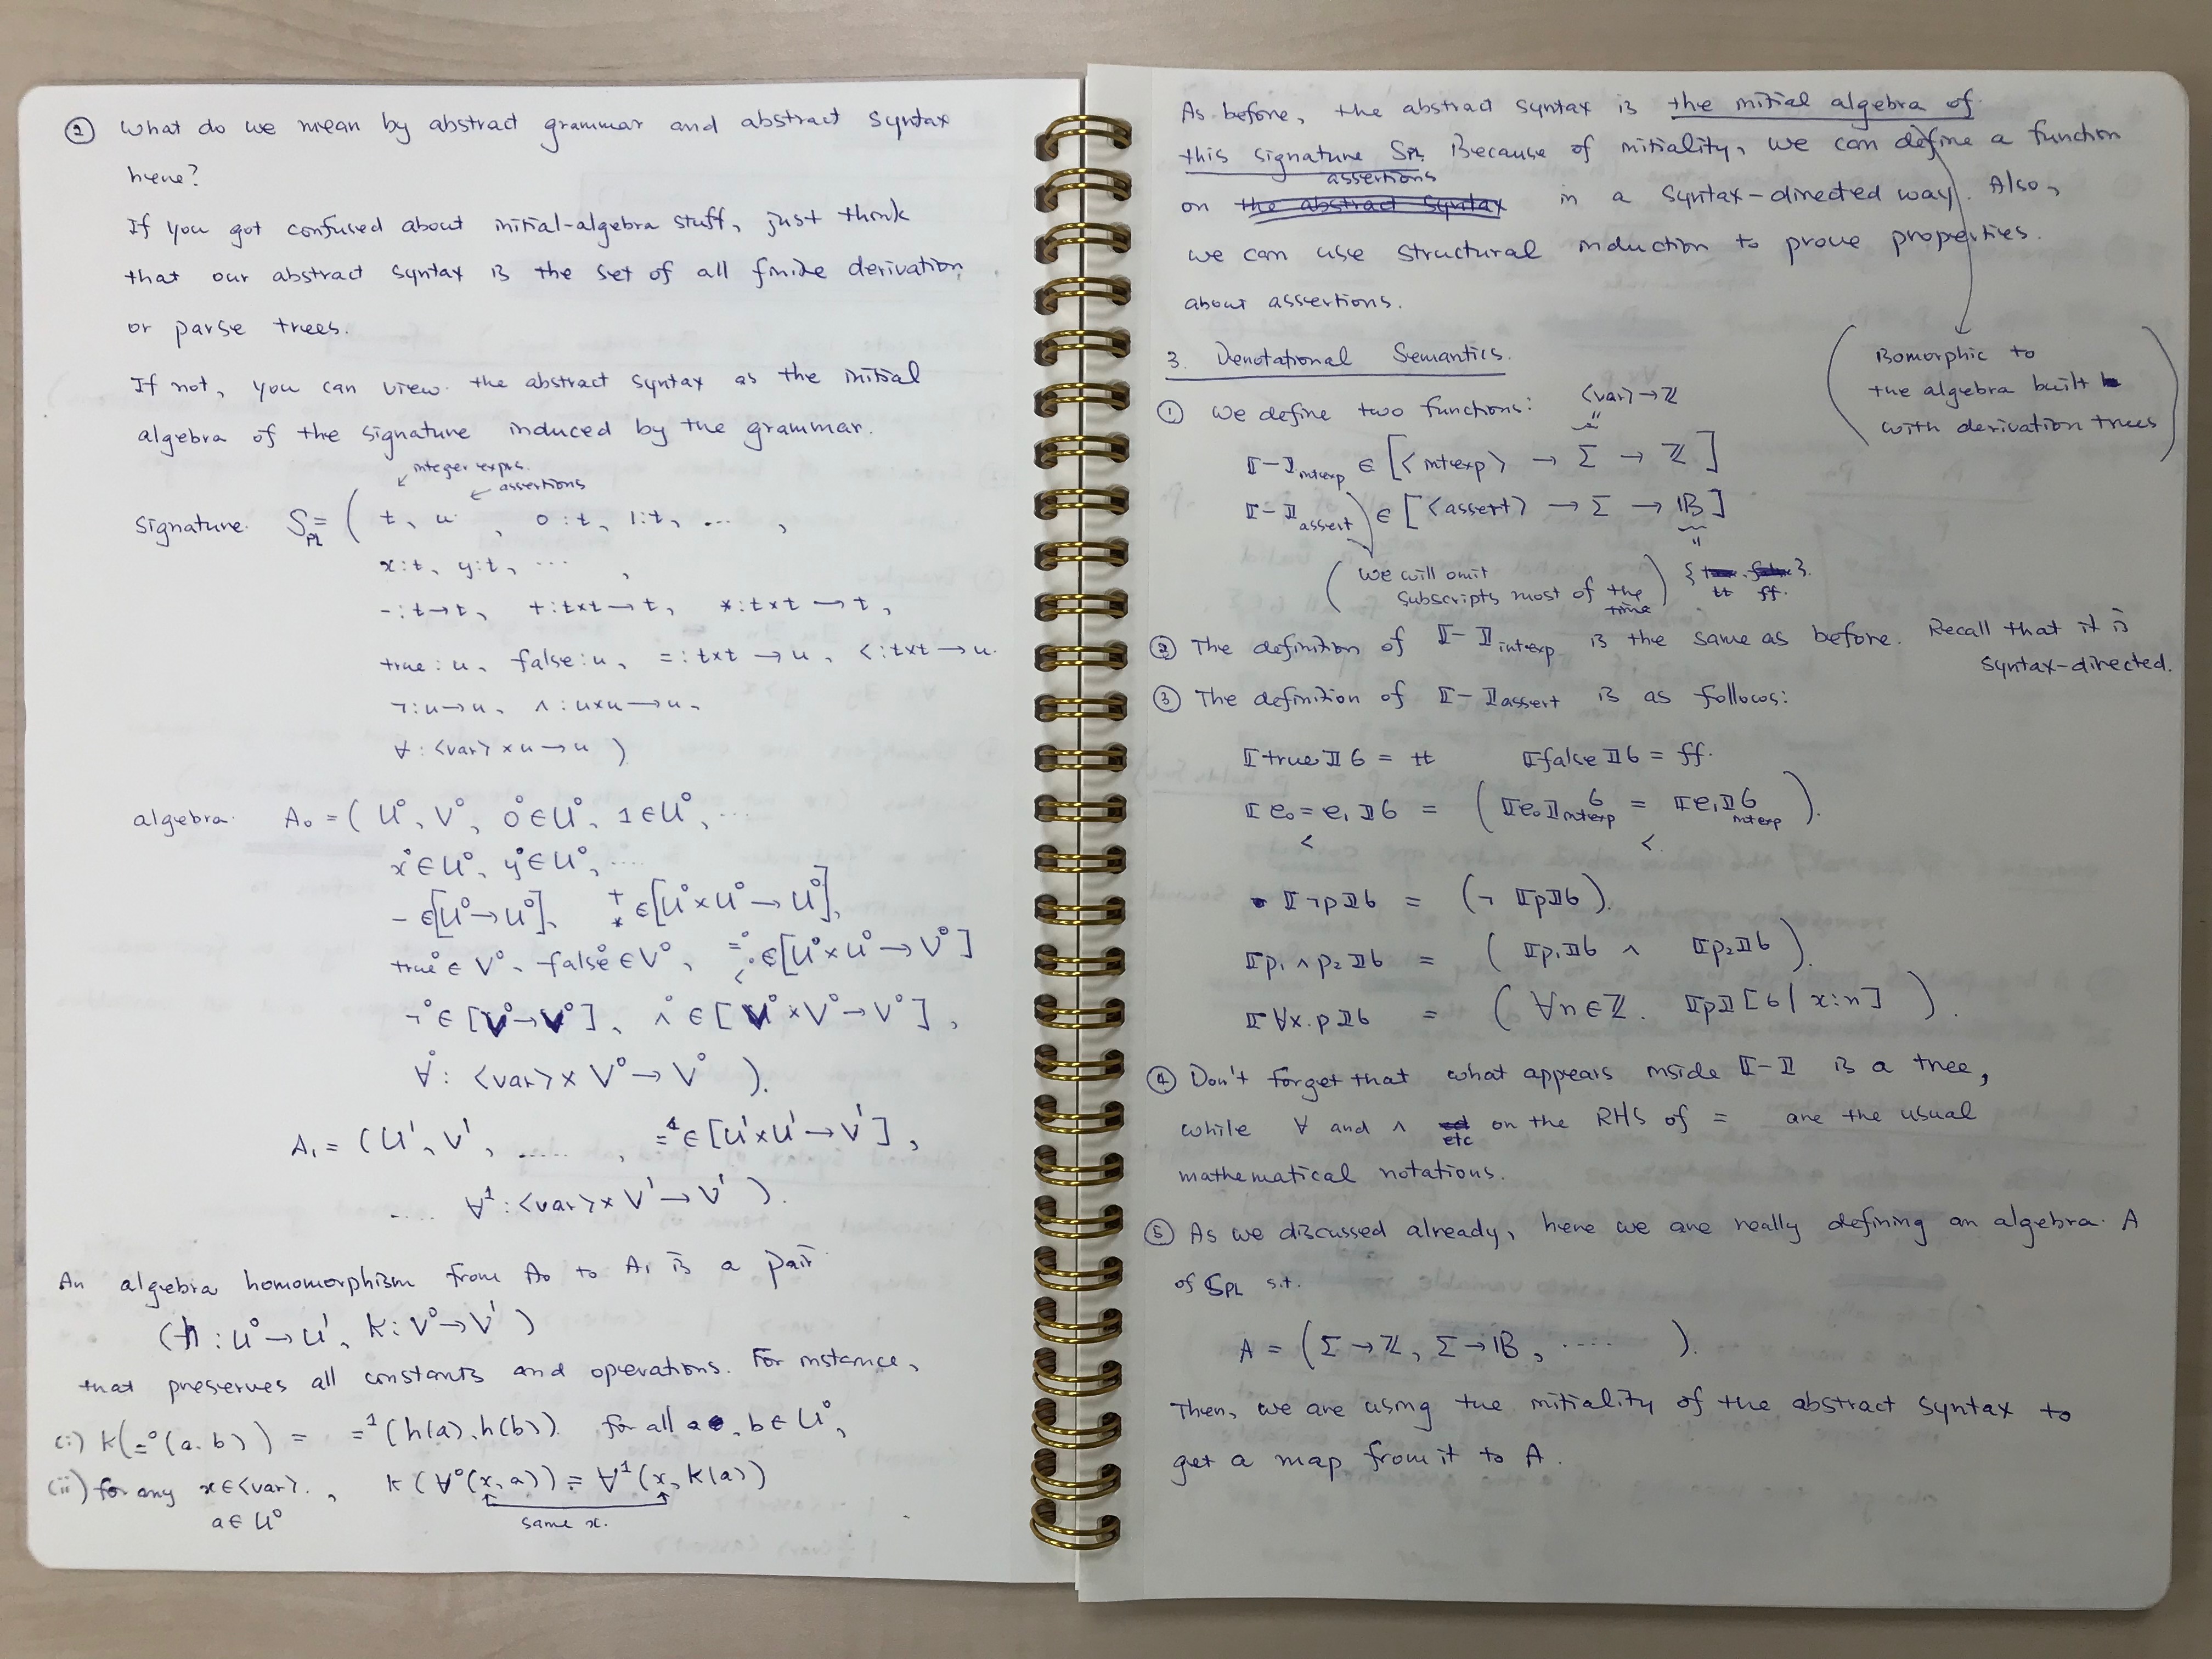 ② What do we mean by abstract grammar and abstract syntax
here?
If you got confused about initial-algebra stuff, just think
that our abstract syntax is the set of all finite derivation
or parse trees.
If not, you can view the abstract syntax as the initial
algebra of the signature induced by the grammar.
integer exprs.
assertions
Signature. S_PL = ( t, u , 0:t, 1:t, ... ,
x:t, y:t, ... ,
-:t→t, +:t×t→t, *:t×t→t,
true:u, false:u, =:t×t→u, <:t×t→u.
¬:u→u, ∧:u×u→u,
∀:<var>×u→u )
algebra. A₀ = ( U⁰, V⁰, 0⁰∈U⁰, 1∈U⁰, ...
x⁰∈U⁰, y⁰∈U⁰, ....
- ∈[U⁰→U⁰], + * ∈[U⁰×U⁰→U⁰],
true⁰∈V⁰, false⁰∈V⁰, =⁰ <⁰ ∈[U⁰×U⁰→V⁰]
¬⁰∈[V⁰→V⁰], ∧⁰∈[V⁰×V⁰→V⁰],
∀⁰: <var>×V⁰→V⁰ ).
A₁ = (U¹, V¹, ...... , =¹∈[U¹×U¹→V¹],
.... ∀¹:<var>×V¹→V¹ ).
An algebra homomorphism from A₀ to A₁ is a pair
(h:U⁰→U¹, k:V⁰→V¹)
that preserves all constants and operations. For instance,
(i) k(=⁰(a,b)) = =¹(h(a),h(b)) for all a, b∈U⁰,
(ii) for any x∈<var>, k(∀⁰(x,a)) = ∀¹(x,k(a))
a∈U⁰
same x.
As before, the abstract syntax is the initial algebra of
this signature S_PL. Because of initiality, we can define a function
assertions
on the abstract syntax in a syntax-directed way. Also,
we can use structural induction to prove properties
about assertions.
(isomorphic to
the algebra built
with derivation trees)
3. Denotational Semantics.
<var>→ℤ
① We define two functions: =
⟦-⟧intexp ∈ [<intexp> → Σ → ℤ]
⟦-⟧assert ∈ [<assert> → Σ → 𝔹]
=
(we will omit
subscripts most of the
time)
{ true, false }.
tt ff.
② The definition of ⟦-⟧intexp is the same as before. Recall that it is
syntax-directed.
③ The definition of ⟦-⟧assert is as follows:
⟦true⟧σ = tt ⟦false⟧σ = ff.
⟦e₀ = e₁⟧σ = ( ⟦e₀⟧intexp σ = ⟦e₁⟧intexp σ ).
< <.
⟦¬p⟧σ = (¬ ⟦p⟧σ).
⟦p₁ ∧ p₂⟧σ = ( ⟦p₁⟧σ ∧ ⟦p₂⟧σ ).
⟦∀x.p⟧σ = ( ∀n∈ℤ. ⟦p⟧[σ|x:n] ).
④ Don't forget that what appears inside ⟦-⟧ is a tree,
while ∀ and ∧ etc on the RHS of = are the usual
mathematical notations.
⑤ As we discussed already, here we are really defining an algebra A
of S_PL s.t.
A = (Σ→ℤ, Σ→𝔹, ..... ).
Then, we are using the initiality of the abstract syntax to
get a map from it to A.